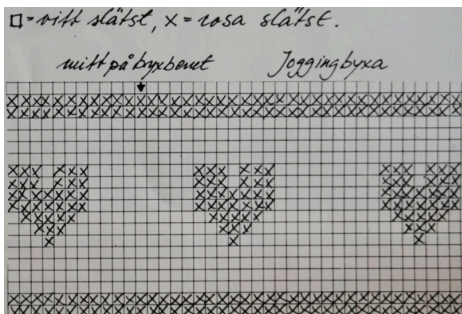 □ = vitt slätst, x = rosa slätst.
mitt på byxbenet Joggingbyxa